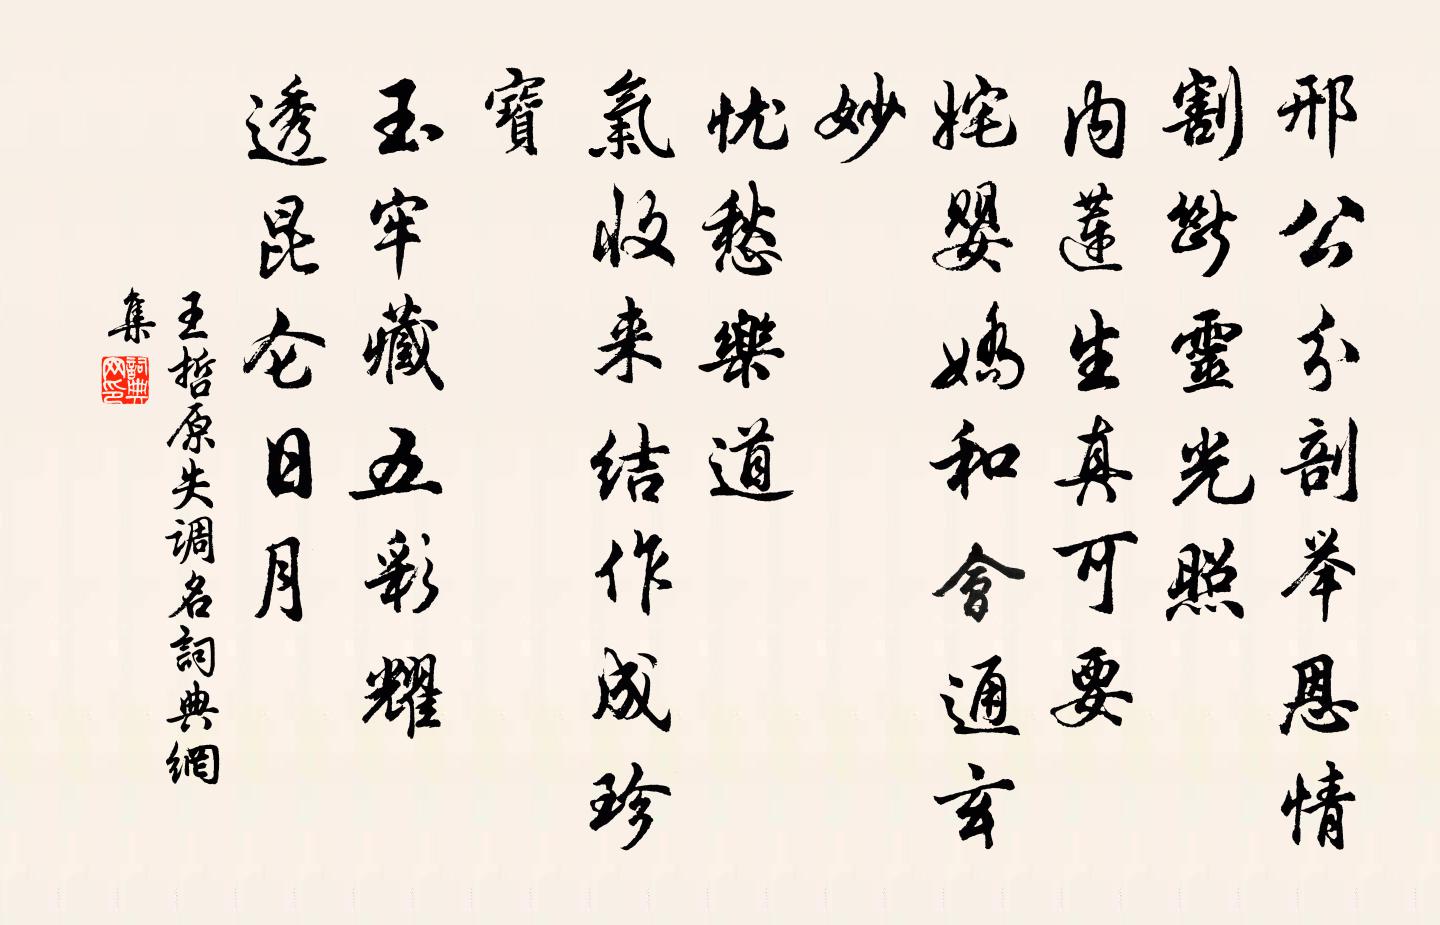 邢公分剖举恩情
割斷靈光照
内蓮生真可要
姹嬰嬌和會通玄
妙
忧愁樂道
氣收来结作成珍
寶
玉牢藏五彩耀
透昆仑日月
王哲原失调名詞典網
集
詞典
网印